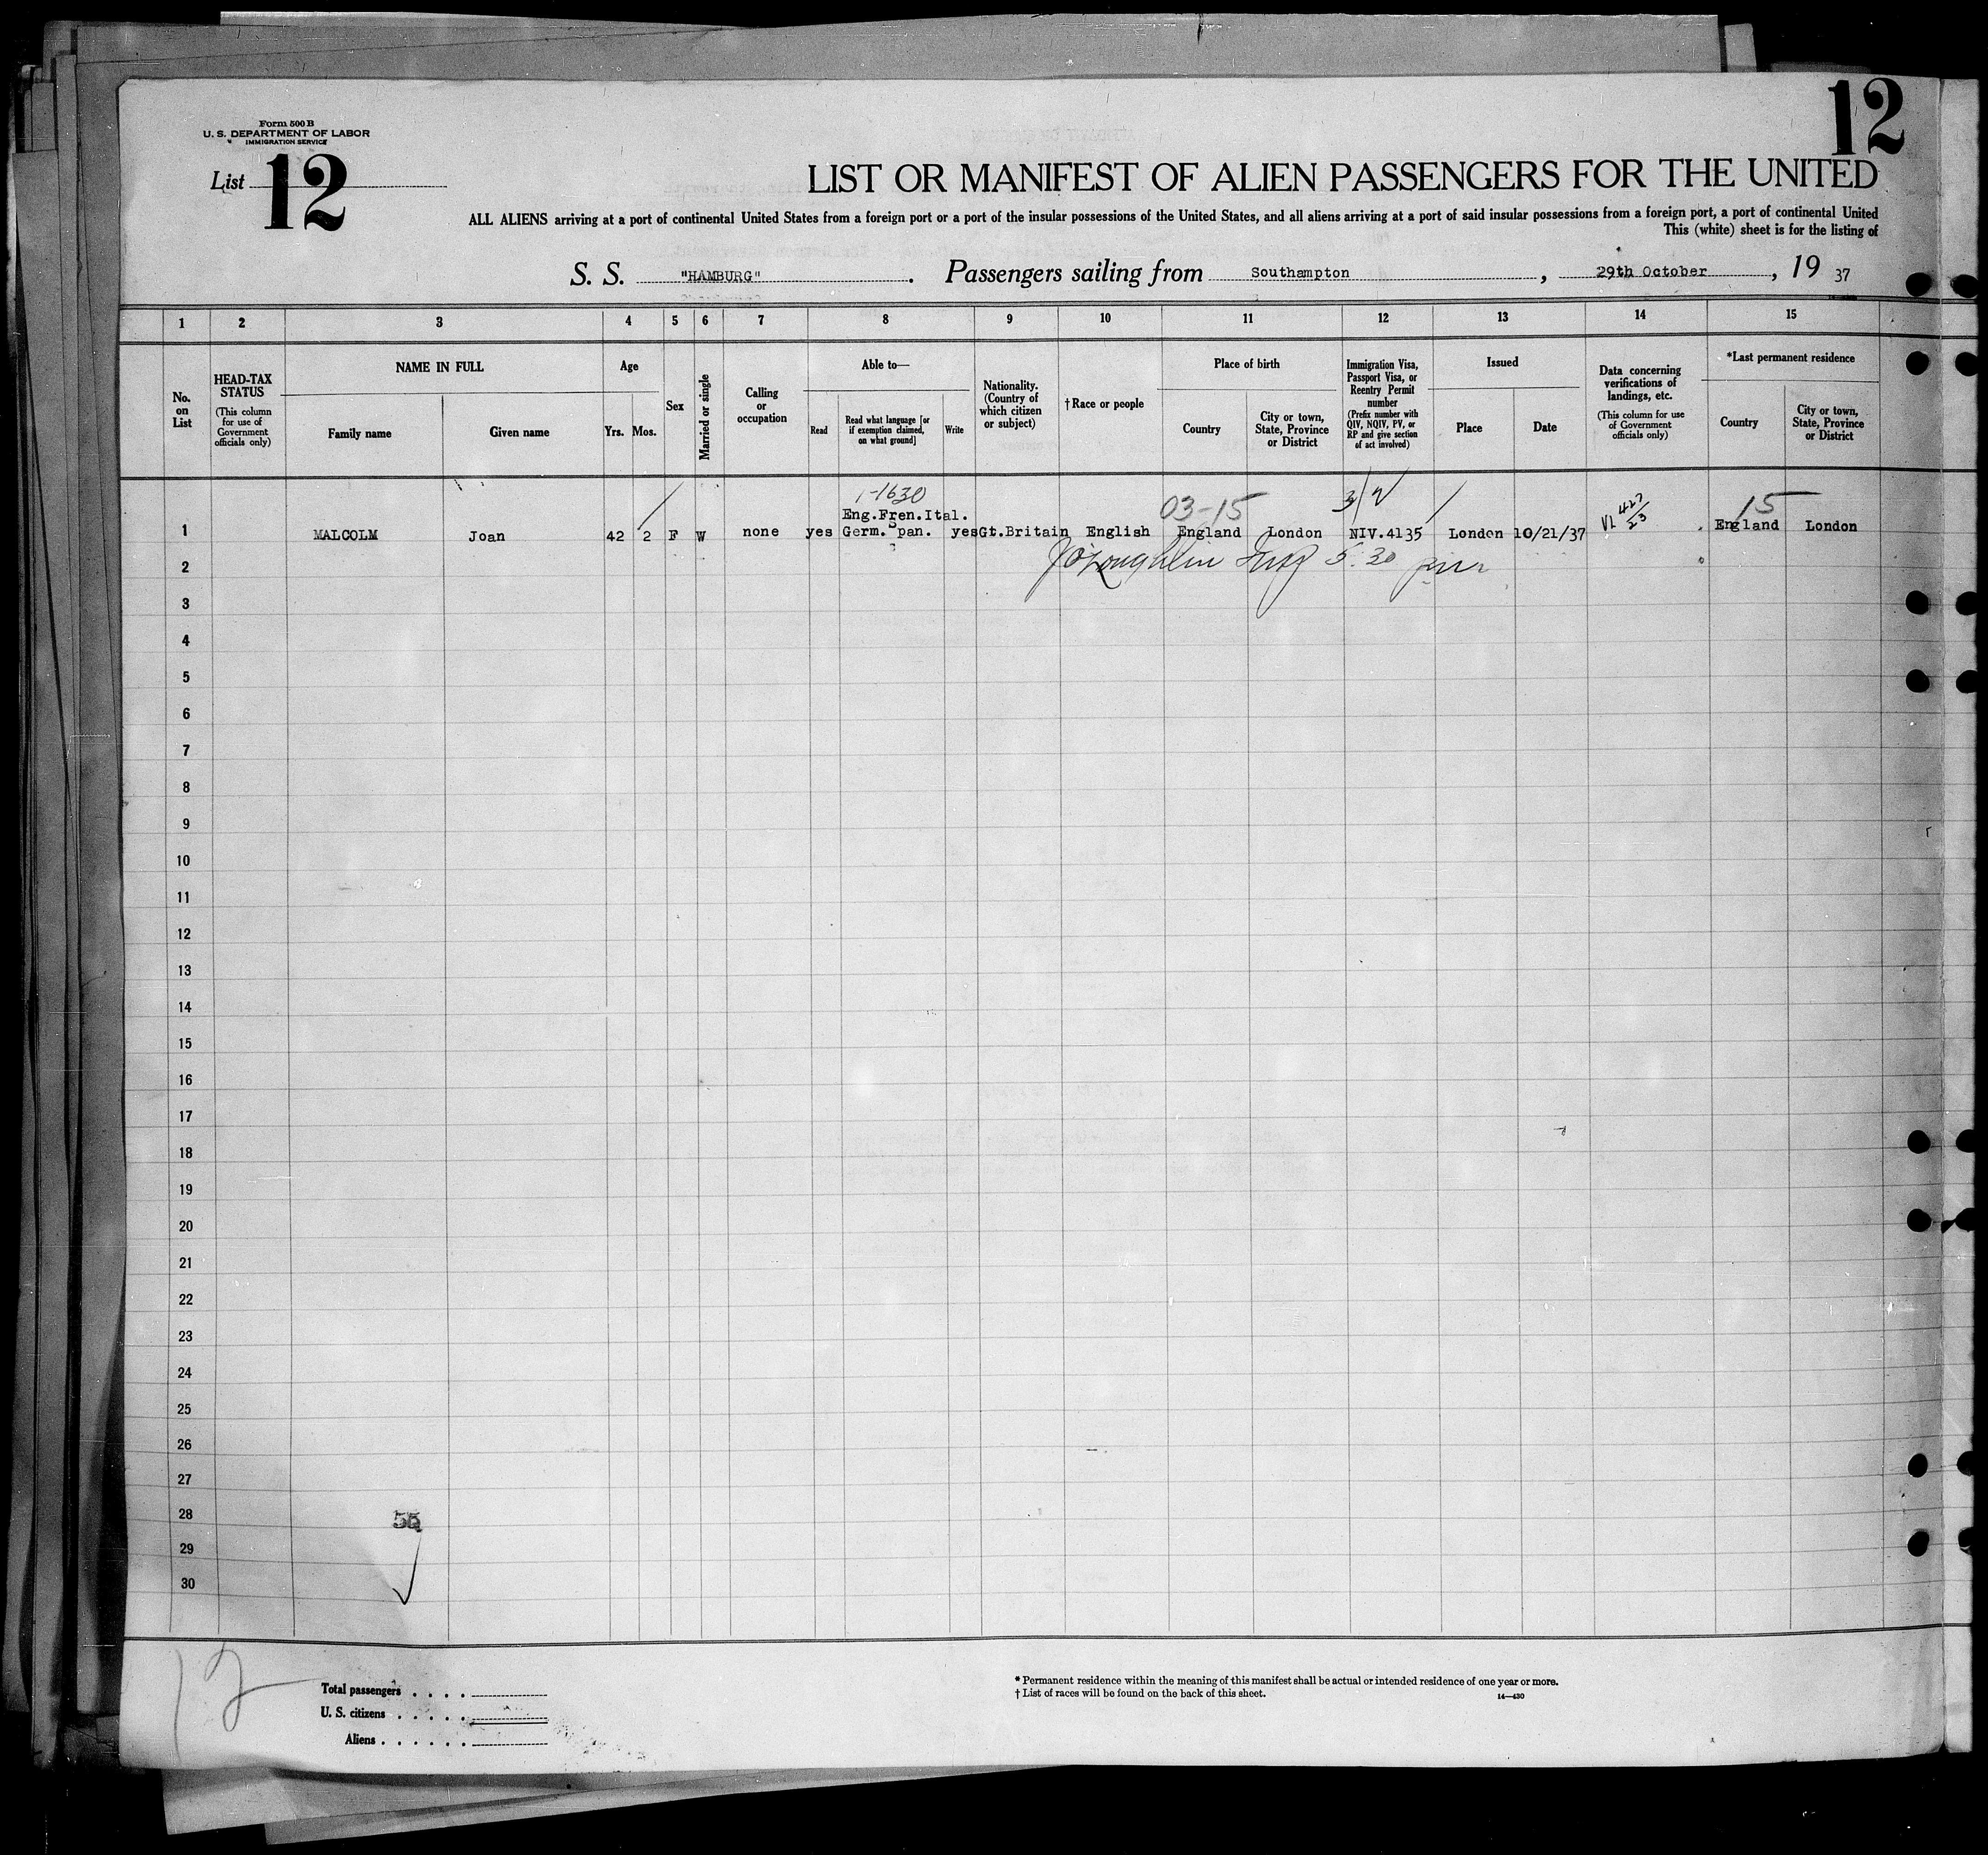 12
Form 500 B
U. S. DEPARTMENT OF LABOR
IMMIGRATION SERVICE
List 12
LIST OR MANIFEST OF ALIEN PASSENGERS FOR THE UNITED
ALL ALIENS arriving at a port of continental United States from a foreign port or a port of the insular possessions of the United States, and all aliens arriving at a port of said insular possessions from a foreign port, a port of continental United
This (white) sheet is for the listing of
S. S. "HAMBURG". Passengers sailing from Southampton, 29th October, 19 37
1 2 3 4 5 6 7 8 9 10 11 12 13 14 15
No. on List
HEAD-TAX STATUS
(This column for use of Government officials only)
NAME IN FULL
Family name
Given name
Age
Yrs. Mos.
Sex
Married or single
Calling or occupation
Able to—
Read
Read what language [or if exemption claimed, on what ground]
Write
Nationality. (Country of which citizen or subject)
†Race or people
Place of birth
Country
City or town, State, Province or District
Immigration Visa, Passport Visa, or Reentry Permit number
(Prefix number with QIV, NQIV, PV, or RP and give section of act involved)
Issued
Place
Date
Data concerning verifications of landings, etc.
(This column for use of Government officials only)
*Last permanent residence
Country
City or town, State, Province or District
1-1630
03-15
3/2
VL 427/23
15
Eng.Fren.Ital.
1 MALCOLM Joan 42 2 F W none yes Germ. Span. yes Gt.Britain English England London NIV.4135 London 10/21/37 England London
2 J O'Loughlin Insp 5.30 pm
3
4
5
6
7
8
9
10
11
12
13
14
15
16
17
18
19
20
21
22
23
24
25
26
27
28
55
29
30
12
Total passengers . . . .
U. S. citizens . . . . .
Aliens . . . . . .
* Permanent residence within the meaning of this manifest shall be actual or intended residence of one year or more.
† List of races will be found on the back of this sheet.
14—430